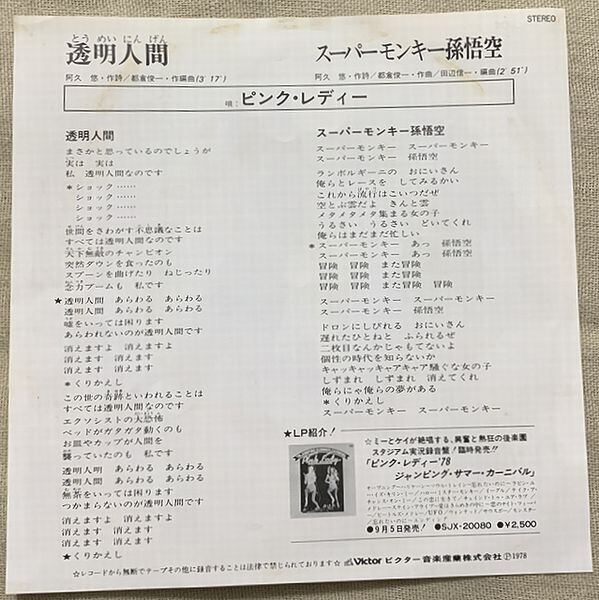 STEREO
とう めい にん げん
透明人間
阿久 悠・作詩/都倉俊一・作編曲(3′17″)
スーパーモンキー孫悟空
阿久 悠・作詩/都倉俊一・作曲/田辺信一・編曲(2′51″)
唄:ピンク・レディー
透明人間
まさかと思っているのでしょうが
実は 実は
私 透明人間なのです
*ショック……
ショック……
ショック……
ショック……
世間をさわがす不思議なことは
すべては透明人間なのです
天下無敵のチャンピオン
突然ダウンを食ったのも
スプーンを曲げたり ねじったり
念力ブームも 私です
★透明人間 あらわる あらわる
透明人間 あらわる あらわる
嘘をいっては困ります
あらわれないのが透明人間です
消えますよ 消えますよ
消えます 消えます
消えます 消えます
*くりかえし
この世の奇跡といわれることは
すべては透明人間なのです
エクソシストの大恐怖
ベッドがガタガタ動くのも
お皿やカップが人間を
襲っていたのも 私です
透明人間 あらわる あらわる
透明人間 あらわる あらわる
無茶をいっては困ります
つかまらないのが透明人間です
消えますよ 消えますよ
消えます 消えます
消えます 消えます
★くりかえし
スーパーモンキー孫悟空
スーパーモンキー スーパーモンキー
スーパーモンキー 孫悟空
ランボルギーニの おにいさん
俺らとレースを してみるかい
これから流行はこいつだぜ
空とぶ雲だよ きんと雲
メタメタメタ集まる女の子
うるさい うるさい どいてくれ
俺らはまだまだ忙しい
*スーパーモンキー あっ 孫悟空
スーパーモンキー あっ 孫悟空
冒険 冒険 また冒険
冒険 冒険 また冒険
冒険 冒険 また冒険 冒険
スーパーモンキー スーパーモンキー
スーパーモンキー 孫悟空
ドロンにしびれる おにいさん
遅れたひとねと ふられるぜ
二枚目なんかじゃもてないよ
個性の時代を知らないか
キャッキャッキャアキャア騒ぐ女の子
しずまれ しずまれ 消えてくれ
俺らにゃ俺らの夢がある
*くりかえし
スーパーモンキー スーパーモンキー
★LP紹介!
☆ミーとケイが絶唱する、興奮と熱狂の後楽園
スタジアム実況録音盤!臨時発売!!
「ピンク・レディー'78
ジャンピング・サマー・カーニバル」
●9月5日発売!●SJX-20080 ●¥2,500
☆レコードから無断でテープその他に録音することは法律で禁じられております☆ Victor ビクター音楽産業株式会社 Ⓟ1978